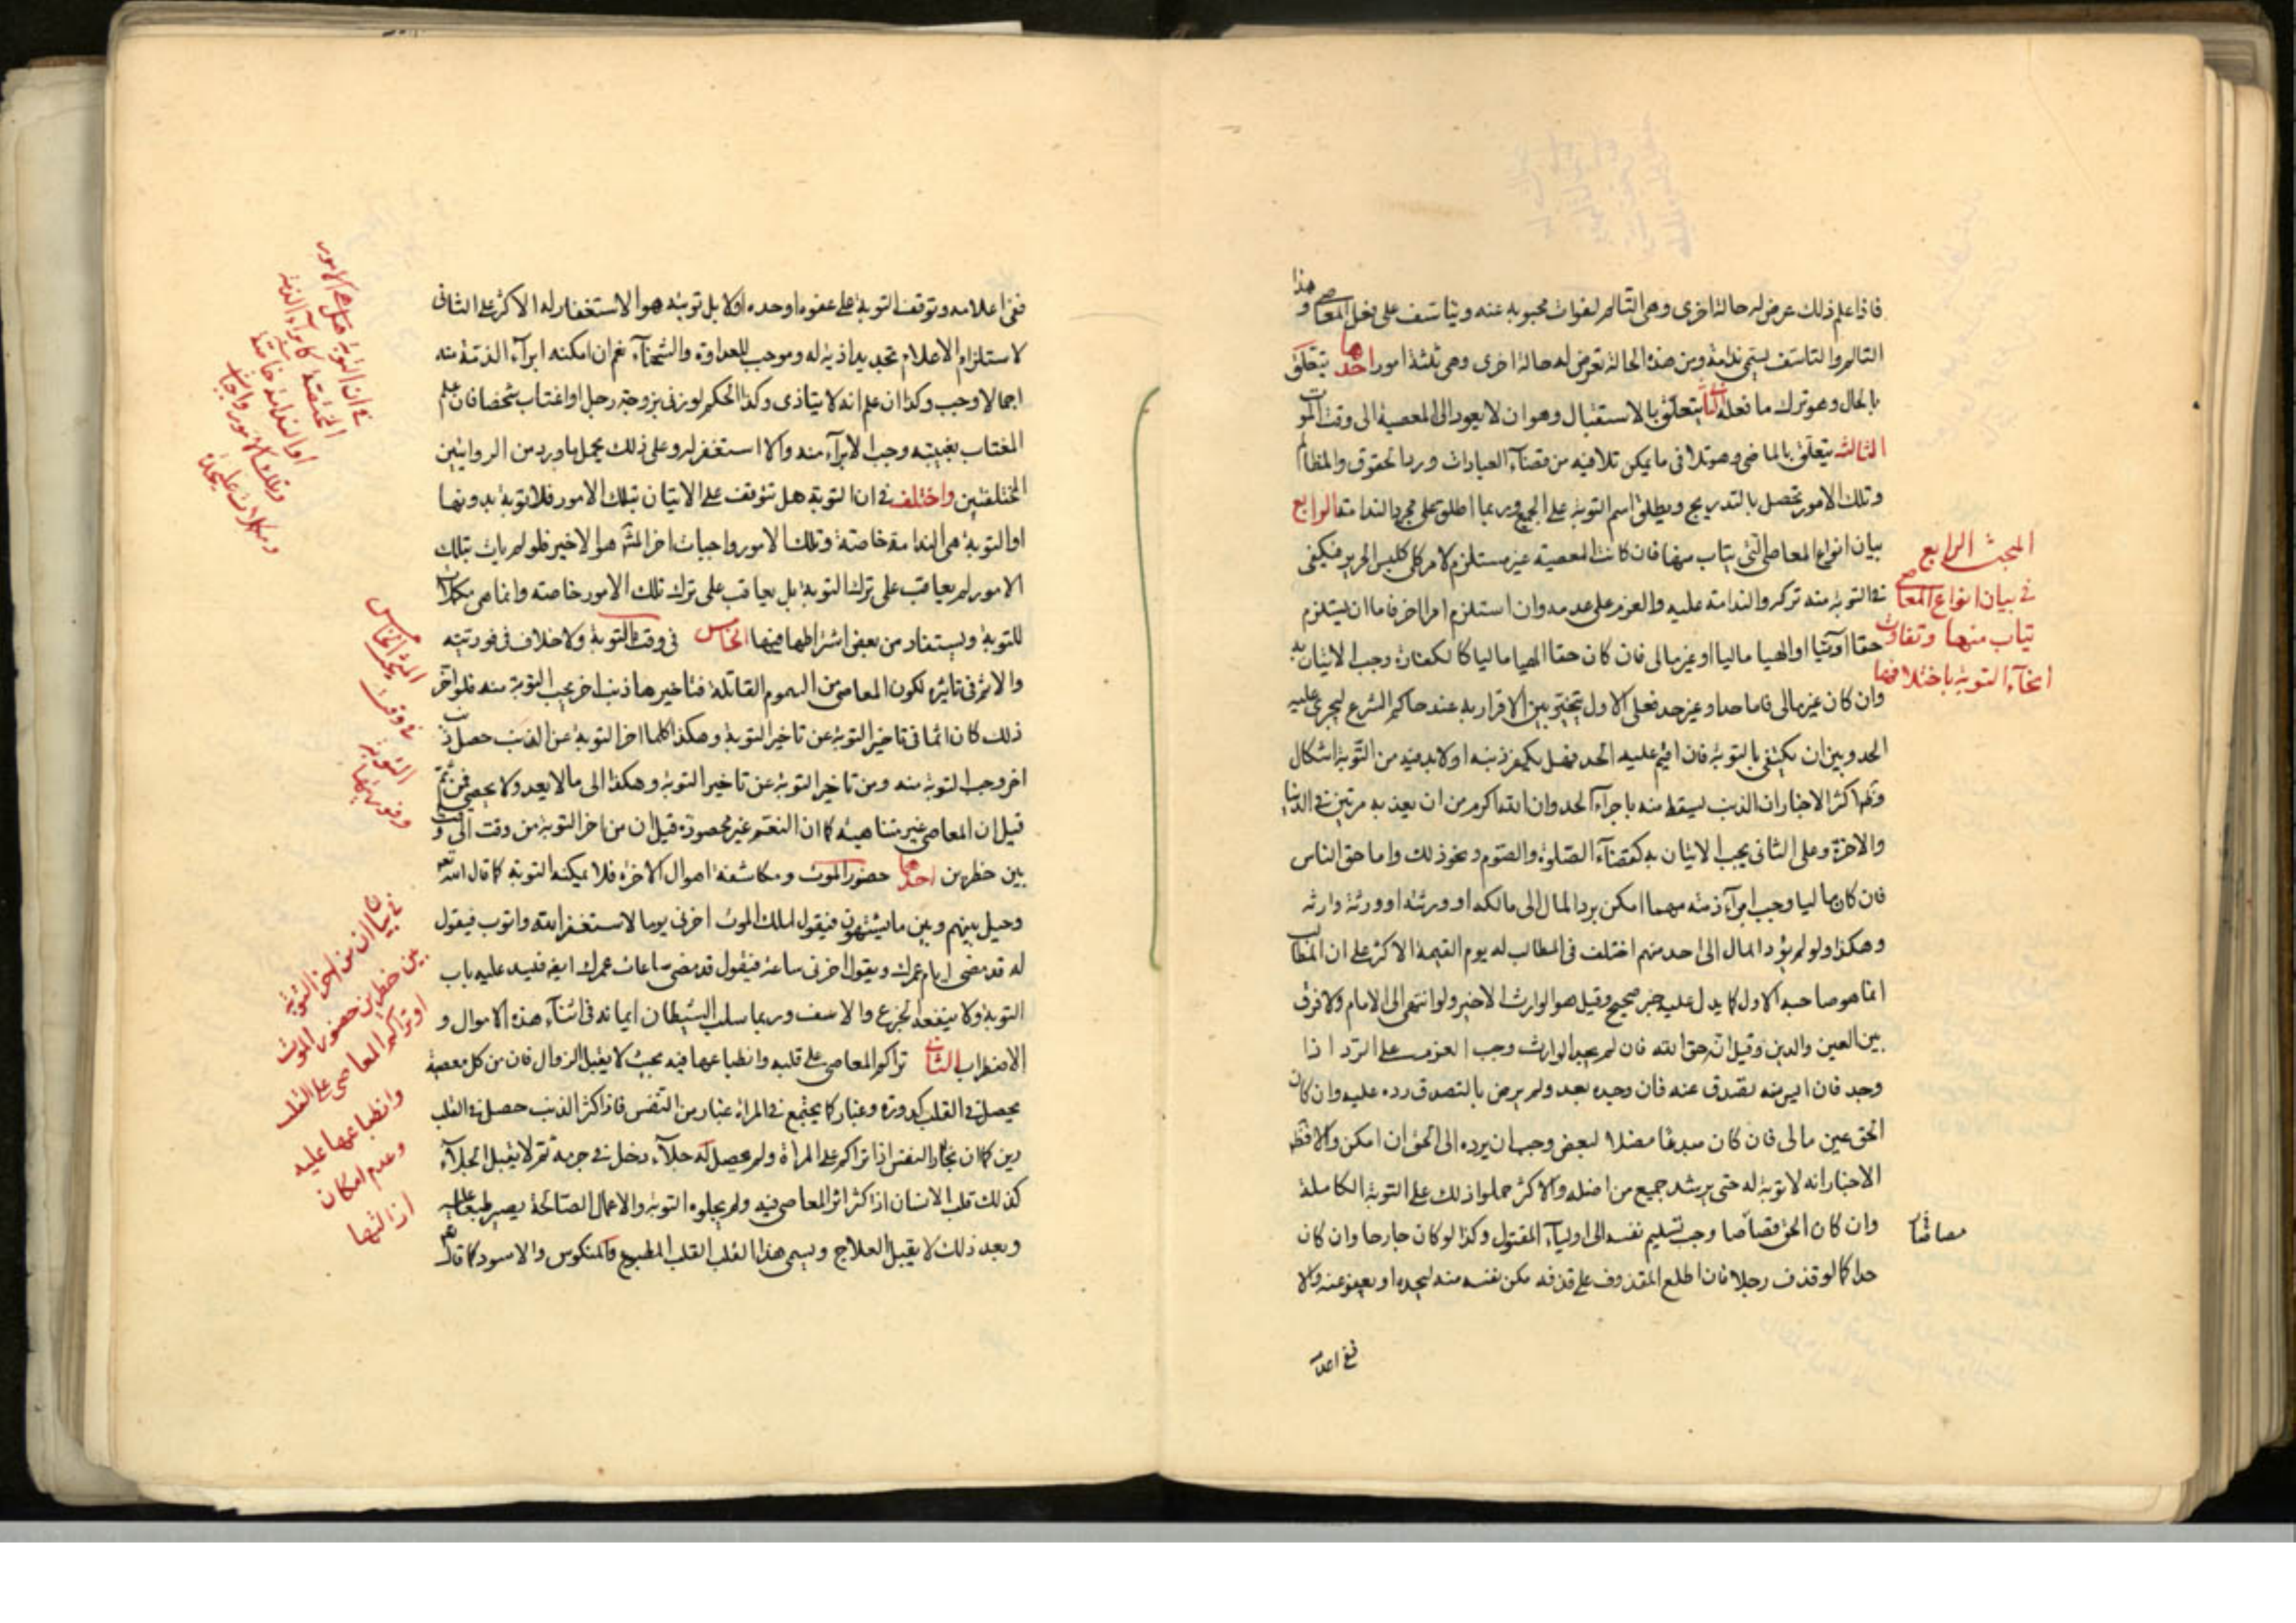 فاذا علم ذلك عرض له حالة اخرى وهى التألم لفوات محبوبه عنه ويتاسف على فعل المعاصى وهذا
التالم والتاسف يسمى ندامة ومن هذه الحالة تعرض له حالة اخرى وهى ثلثة امور احدها يتعلق
بالحال وهو ترك ما فعله الثانى يتعلق بالاستقبال وهو ان لا يعود الى المعصية الى وقت الموت
الثالث يتعلق بالماضى وهو تلافى ما يمكن تلافيه من قضاء العبادات ورد الحقوق والمظالم
وتلك الامور تحصل بالتدريج ويطلق اسم التوبة على الجميع وربما اطلق على مجرد الندامة الرابع
بيان انواع المعاصى التى يتاب منها فان كانت المعصية غير مستلزم لامر كلى كلبس الحرير فيكفى
فى التوبة منه تركه والندامة عليه والعزم على عدمه وان استلزم امرا اخر فاما ان يستلزم
حقا آدميا او الهيا ماليا او غير مالى فان كان حقا الهيا ماليا كالكفارة وجب الاتيان به
وان كان غير مالى فاما حدا وغير حد فعلى الاول يتخير بين الاقرار به عند حاكم الشرع ليجرى عليه
الحد وبين ان يكتفى بالتوبة فان اقيم عليه الحد فهل يكفر ذنبه او لا بد فيه من التوبة اشكال
وظ اكثر الاخبار ان الذنب يسقط منه باجراء الحد وان الله اكرم من ان يعذبه مرتين فى الدنيا
والاخرة وعلى الثانى يجب الاتيان به كقضاء الصلوة والصوم ونحو ذلك واما حق الناس
فان كان ماليا وجب ابراء ذمته مهما امكن برد المال الى مالكه او ورثته او ورثة وارثه
وهكذا ولو لم يؤد المال الى احد منهم اختلف فى المطالب له يوم القيمة الاكثر على ان المطالب
انما هو صاحبه الاول كما يدل عليه خبر صحيح وقيل هو الوارث الاخير ولو انتهى الى الامام ولا فرق
بين العين والدين وقيل انه حق الله فان لم يجد الوارث وجب العزم على الرد اذا
وجد فان ايس منه تصدق عنه فان وجده بعد ولم يرض بالتصدق رده عليه وان كان
الحق غير مالى فان كان مبدعا مضلا لبعض وجب ان يرده الى الحق ان امكن والا فظ
الاخبار انه لا توبة له حتى يرشد جميع من اضله والاكثر حملوا ذلك على التوبة الكاملة
وان كان الحق قصاصا وجب تسليم نفسه الى اولياء المقتول وكذا لو كان جارحا وان كان
حدا كما لو قذف رجلا فان اطلع المقذوف على قذفه مكن نفسه منه ليحده او يعفو عنه والا
ففى اعلا
المبحث الرابع
فى بيان انواع المعاصى
يتاب منها وتفاوت
انحاء التوبة باختلافها
ففى اعلامه وتوقف التوبة على عفوه او حده او لا بل توبته هو الاستغفار له الاكثر على الثانى
لاستلزام الاعلام تجديد اذية له وموجب للعداوة والشحناء نعم ان امكنه ابراء الذمة منه
اجمالا وجب وكذا ان علم انه لا يتاذى وكذا الحكم لو زنى بزوجة رجل او اغتاب شخصا فان علم
المغتاب بغيبته وجب الابراء منه والا استغفر له وعلى ذلك يحمل ما ورد من الروايتين
المختلفتين واختلف فى ان التوبة هل تتوقف على الاتيان بتلك الامور فلا توبة بدونها
او التوبة هى الندامة خاصة وتلك الامور واجبات اخر المش هو الاخير فلو لم يات بتلك
الامور لم يعاقب على ترك التوبة بل يعاقب على ترك تلك الامور خاصه وانما هى مكملات
للتوبة ويستفاد من بعض اشتراطها فيها الخامس فى وقت التوبة ولا خلاف فى فوريته
والاثر فى تاثيره لكون المعاصى من السموم القاتلة فتاخيرها ذنب اخر يجب التوبة منه فلو اخر
ذلك كان اثما فى تاخير التوبة عن تاخير التوبة وهكذا كلما اخر التوبة عن الذنب حصل ذنب
اخر وجب التوبة منه ومن تاخير التوبة عن تاخير التوبة وهكذا الى ما لا يعد ولا يحصى فمن ثم
قيل ان المعاصى غير متناهية كما ان النعم غير محصورة قيل ان من اخر التوبة من وقت الى وقت
بين خطرين احدها حضور الموت ومكاشفة اهوال الاخرة فلا يمكنه التوبة كما قال الله تعه
وحيل بينهم وبين ما يشتهون فيقول لملك الموت اخرنى يوما لاستغفر الله واتوب فيقول
له قد مضى ايام عمرك ويقول اخرنى ساعة فيقول قد مضى ساعات عمرك ايضه فيسد عليه باب
التوبة ولا ينفعه الجزع والاسف وربما سلب الشيطان ايمانه فى اثناء هذه الاهوال و
الاضطراب الثانى تراكم المعاصى على قلبه وانطباعها فيه بحيث لا يقبل الزوال فان من كل معصية
يحصل فى القلب كدورة وغبار كما يجتمع فى المراة غبار من التنفس فاذا كثر الذنب حصل فى القلب
رين كما ان بخار النفس اذا تراكم على المراة ولم يحصل له جلاء دخل فى جرمه ثم لا يقبل الجلاء
كذلك قلب الانسان اذا كثر اثر المعاصى فيه ولم يجلوه التوبة والاعمال الصالحة يصير طبعا عليه
وبعد ذلك لا يقبل العلاج ويسمى هذا القلب القلب المطبوع والمنكوس والاسود كما قال
فى ان التوبة قبل هى الامور
او الندامة خاصة
وتلك الامور واجبات
ومكملات على حدة
المبحث الخامس
فى وقت
التوبة
وفوريتها
فى بيان ان من اخر التوبة
بين خطرين حضور الموت
او تراكم المعاصى على القلب
وانطباعها عليه
وعدم امكان
ازالتها